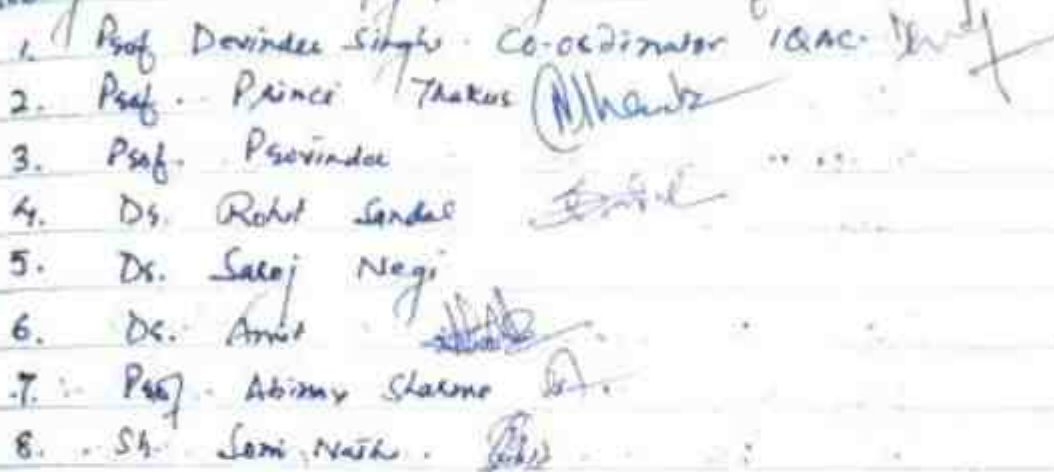 1. Prof Devinder Singh. Co-ordinator IQAC.
2. Prof. Prince Thakur
3. Prof. Provinder
4. Dr. Rohit Sandal
5. Dr. Saroj Negi
6. Dr. Amit
7. Prof. Abinay Sharma
8. Sh. Som Nath.